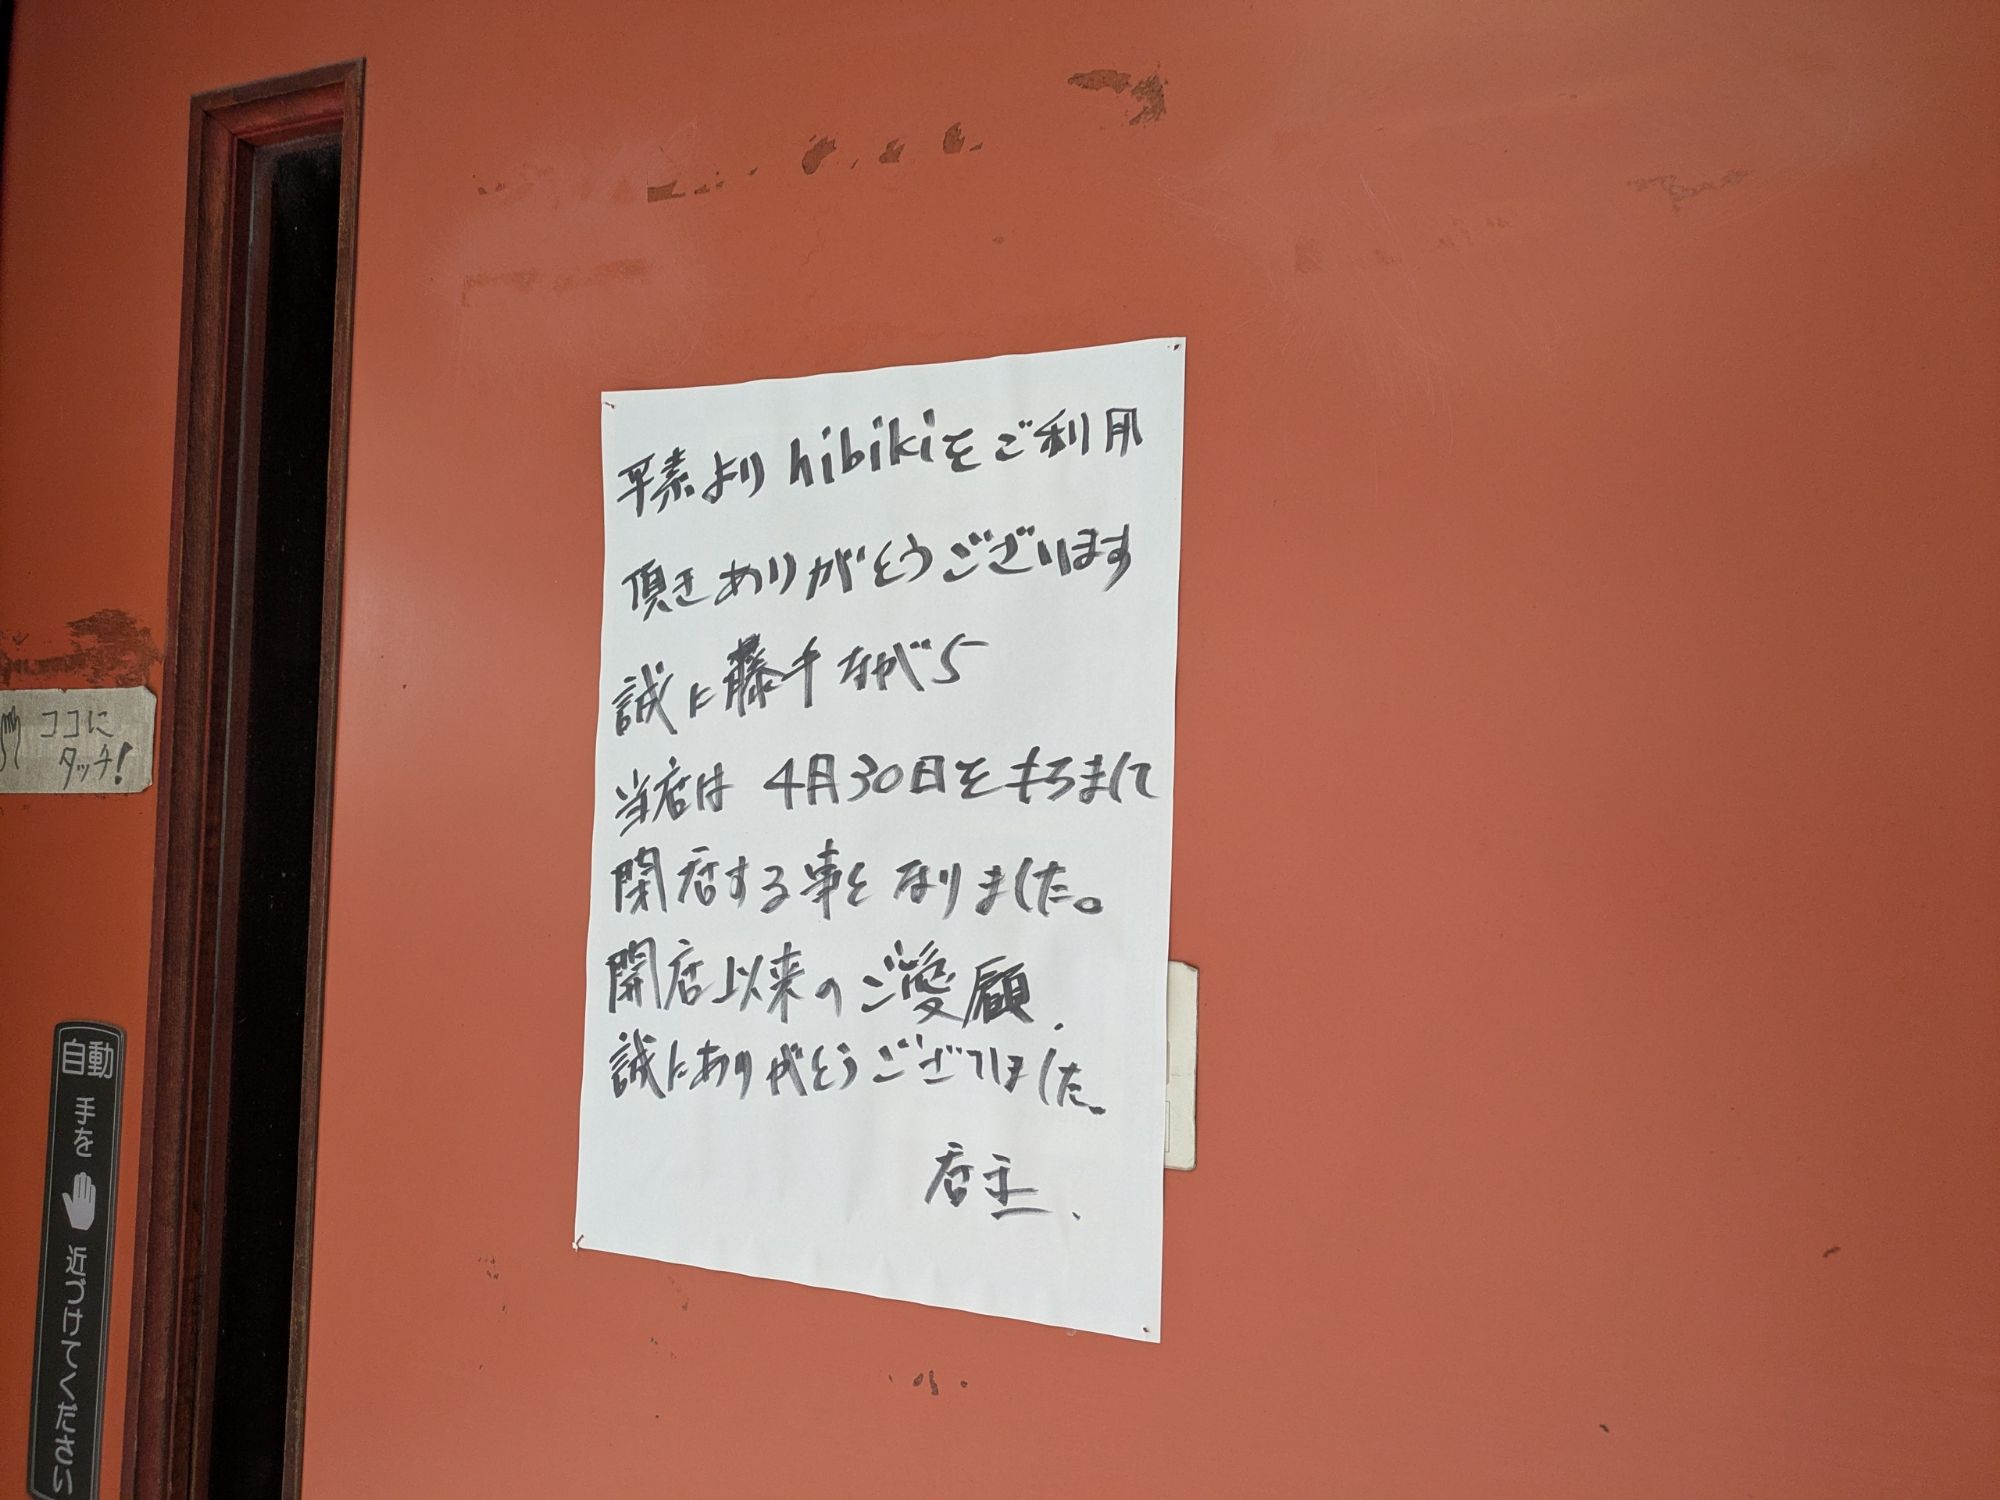 平素よりhibikiをご利用
頂きありがとうございます
誠に藤手ながら
当店は4月30日をもちまして
閉店する事となりました。
開店以来のご愛顧
誠にありがとうございました。
店主
ココに
タッチ!
自動
手を
近づけてください